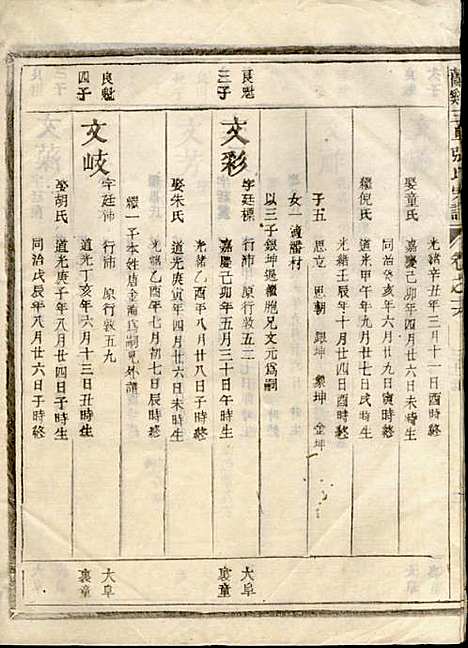 蘭谿三畫張氏宗譜 卷之六
光緒辛丑年三月十一日酉時終
娶童氏 嘉慶己卯年四月廿六日未時生
同治癸亥年六月廿九日寅時終
繼倪氏 道光甲午年九月廿七日戌時生
光緒壬辰年十月廿四日酉時終
子五 思立 思朝 銀坤 銀坤 金坤
女一 適潘村
以三子銀坤過繼胞兄文元爲嗣
良魁三子
文彩 字廷標 行沛 原行敦五二
嘉慶己卯年五月三十日午時生
光緒乙酉年八月廿八日子時終
娶朱氏 道光庚寅年四月廿六日未時生
光緒乙酉年七月初七日辰時終
繼一子本姓唐金南爲嗣見外譜
大阜裏童
良魁四子
文岐 字廷佈 行沛 原行敦五九
道光丁亥年六月十三日丑時生
同治戊辰年八月廿六日子時終
娶胡氏 道光庚子年八月廿四日子時生
同治戊辰年八月廿六日子時終
大阜裏童